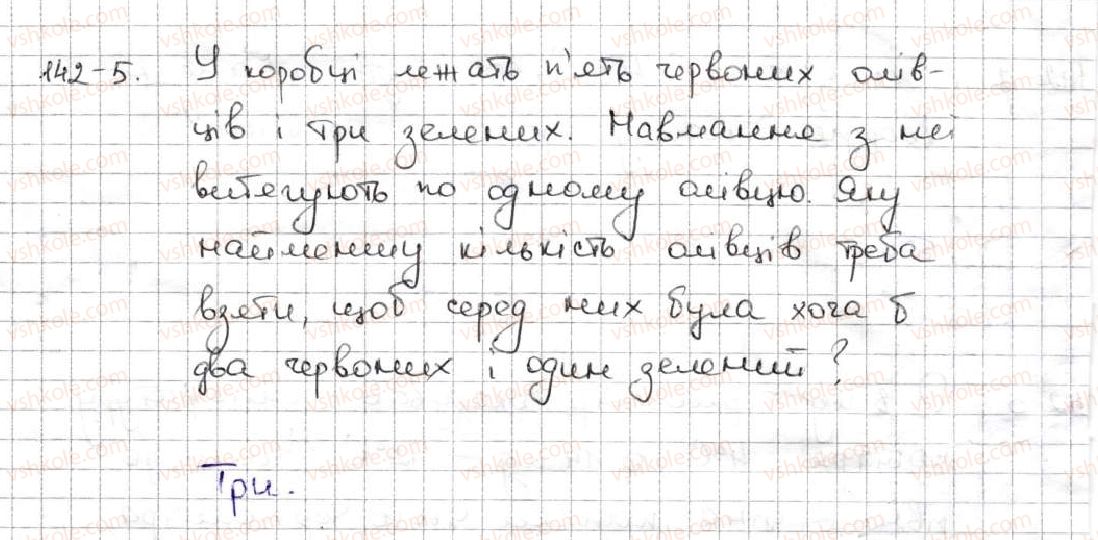 142-5. У коробці лежать п'ять червоних олів-
ців і три зелених. Навмання з неї
витягують по одному олівцю. Яку
найменшу кількість олівців треба
взяти, щоб серед них була хоча б
два червоних і один зелений?
Три.